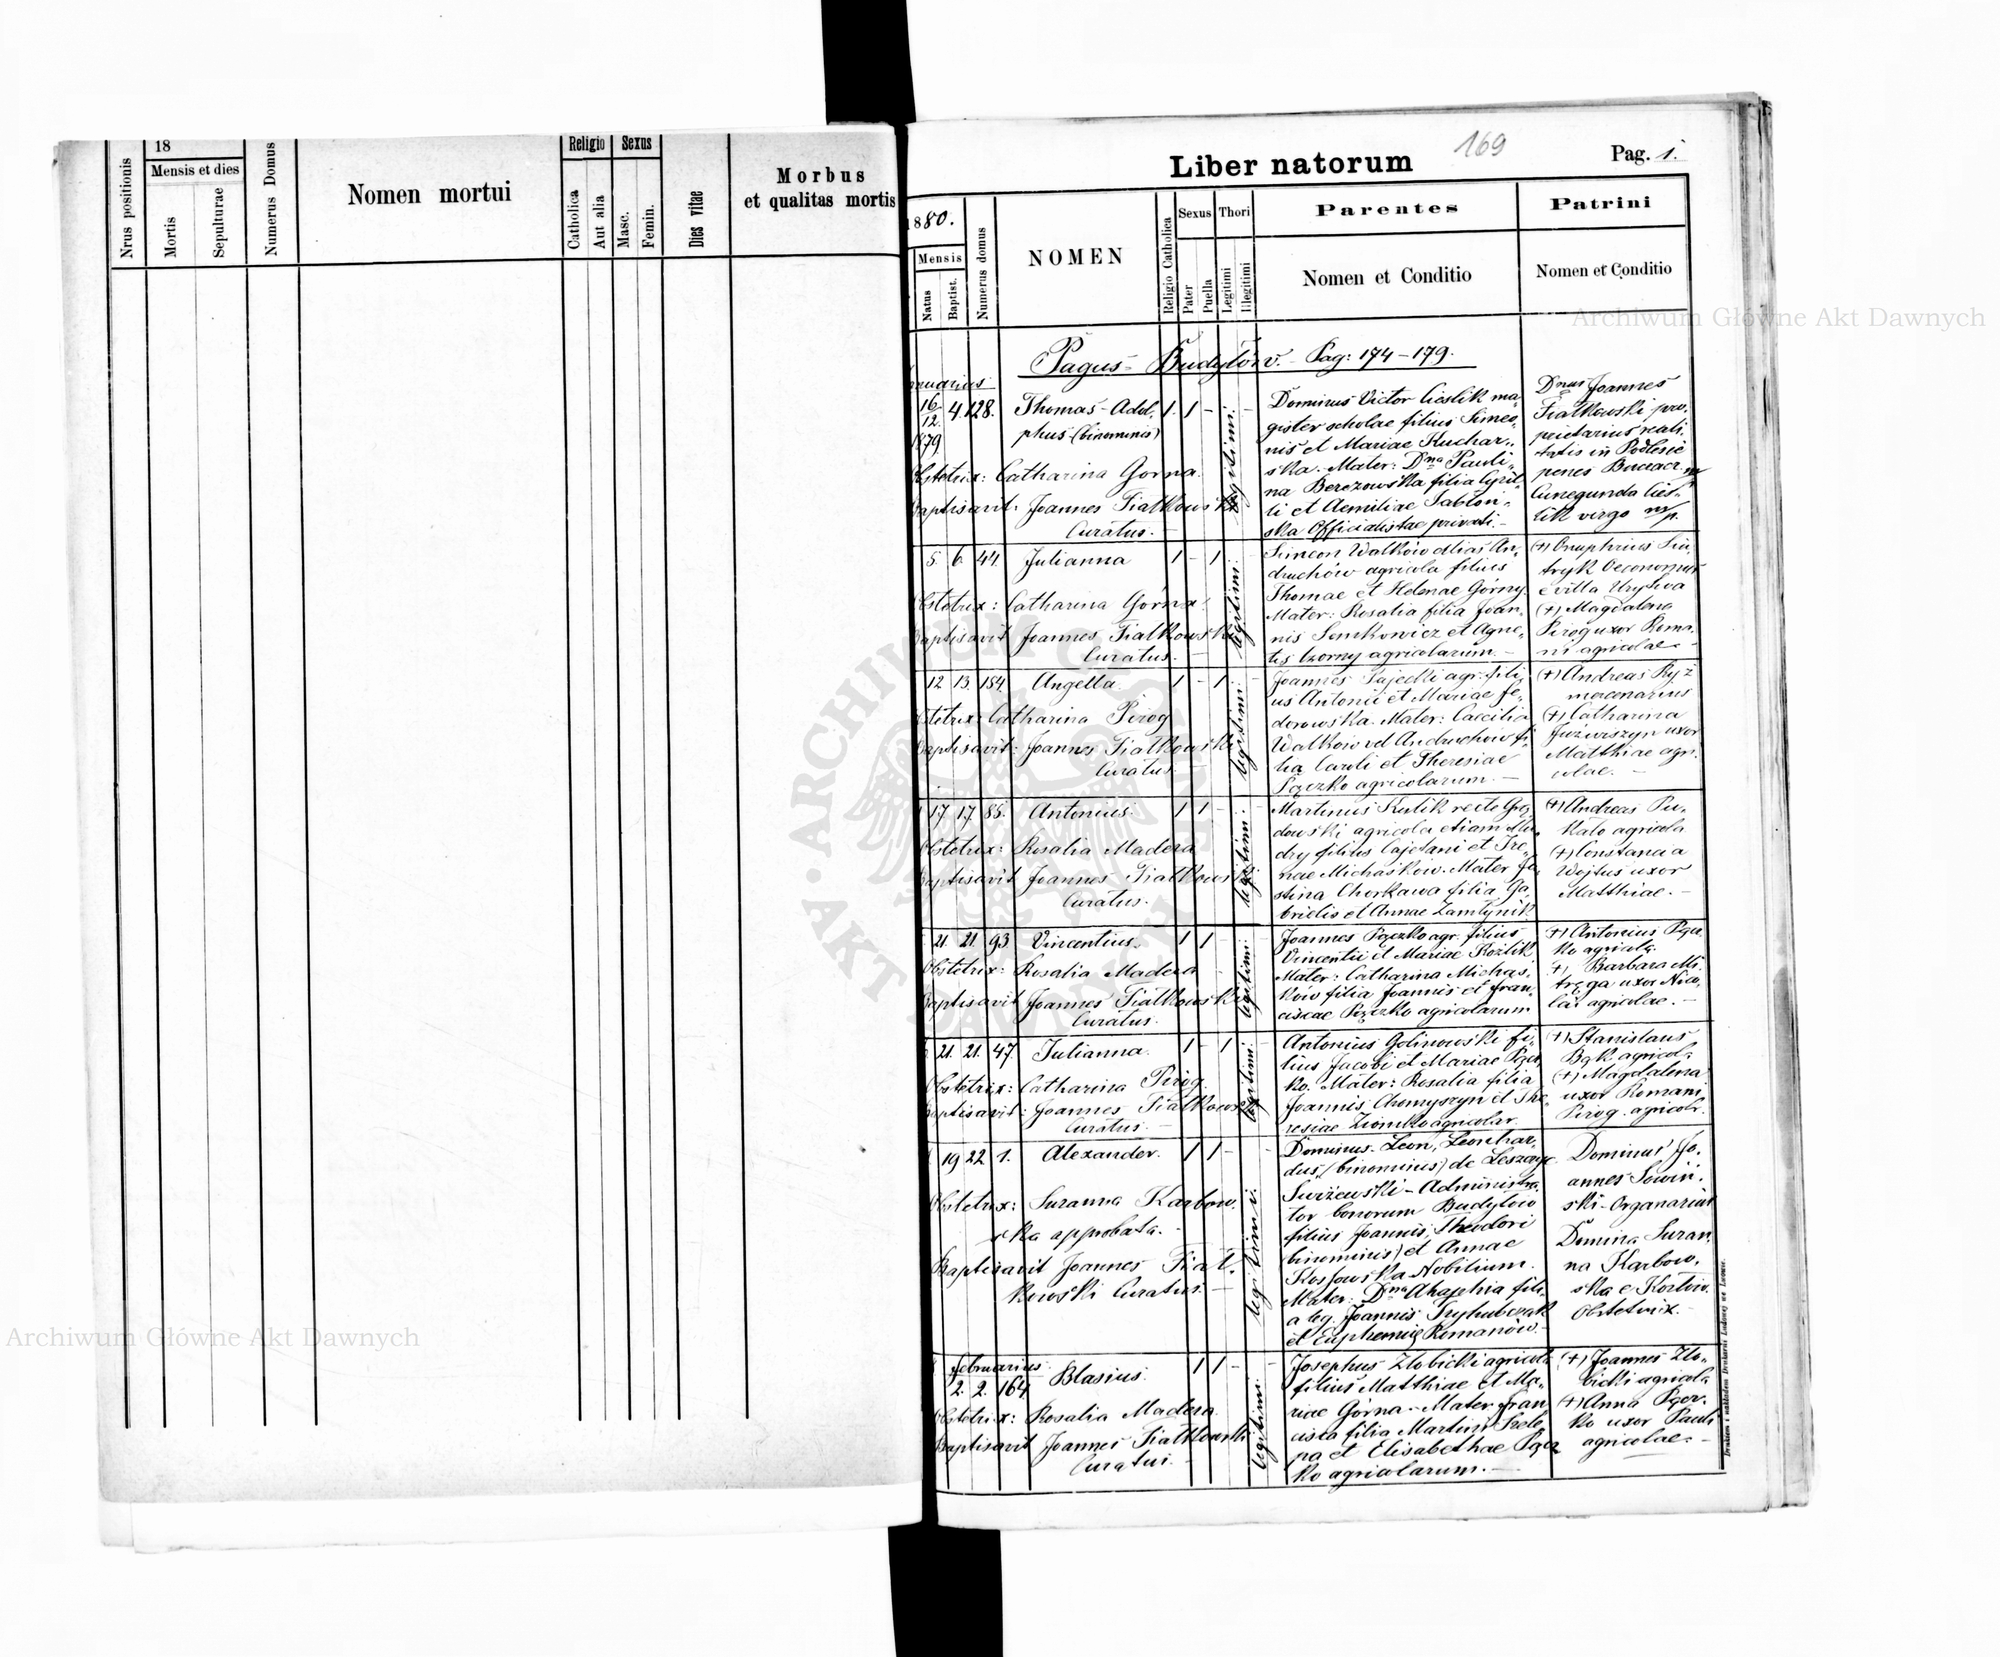 18
Mensis et dies
Nrus positionis
Mortis
Sepulturae
Numerus Domus
Nomen mortui
Religio
Sexus
Catholica
Aut alia
Masc.
Femin.
Dies vitae
Morbus
et qualitas mortis
Liber natorum
169
Pag. 1.
1880.
Mensis
Natus
Baptist.
Numerus domus
NOMEN
Religio Catholica
Sexus
Thori
Pater
Puella
Legitimi
Illegitimi
Parentes
Nomen et Conditio
Patrini
Nomen et Conditio
Pagus - Budyłów. Pag: 174-179.
nuarius
16/12 1879 4. 128. Thomas-Adol,
phus (binominis)
bstetrix: Catharina Gorna.
aptisavit. Joannes Fiałkowski
Curatus.
legitimi.
Dominus Victor Cieslik ma,
gister scholae filius Simeo,
nis et Mariae Kuchar,,
ska. Mater: Dna Pauli,
na Berezowska filia Cyril,
li et Aemiliae Jabłoń,
ska Officialistae privati.
Dnus Joannes
Fiałkowski pro,
prietarius reali,
tatis in Podlesie
penes Buczacz
Cunegunda Cies,
lik virgo
5. 6. 44. Julianna
bstetrix: Catharina Górna.
aptisavit Joannes Fiałkowski
Curatus.
legitimi.
Simeon Walków alias An,
druchów agricola filius
Thomae et Helenae Górny.
Mater: Rosalia filia Joan,
nis Semkowicz et Agne,
tis Czorny agricolarum.
(+) Onuphrius
Oeconomus
e villa
(+) Magdalena
Pirog uxor Roma,
ni agricolae
12 13. 184. Angella.
bstetrix: Catharina Pirog
aptisavit: Joannes Fiałkowski
Curatus.
legitimi.
Joannes agr. fili,
us Antonii et Mariae Fe,
dorowska. Mater: Caecilia
Walków vel Andruchow fi,
lia Caroli et Theresiae
Pączko agricolarum.
(+) Andreas Ryż
mercenarius
(+) Catharina
uxor
Matthiae agri,
colae.
17. 17. 85. Antonius.
bstetrix: Rosalia Madera
aptisavit Joannes Fiałkowski
Curatus.
legitimi.
Martinus Kulik recte
agricola etiam
dry filius Cajetani et Ire,
nae Michaśków. Mater
Chorkawa filia Ga,
brielis et Annae Zamłynik
(+) Andreas Pu,
kało agricola
(+) Constancia
Wojtus uxor
Matthiae.
21. 21. 93 Vincentius.
Obstetrix: Rosalia Madera
aptisavit Joannes Fiałkowski
Curatus.
legitimi.
Joannes Pączko agr. filius
Vincentii et Mariae Koźlik
Mater: Catharina Michaś,
ków filia Joannis et Fran,
ciscae Pączko agricolarum
(+) Antonius Pącz,
ko agricola.
(+) Barbara Mi,
tręga uxor Nico,
lai agricolae.
21. 21. 47. Julianna.
Obstetrix: Catharina Pirog.
aptisavit: Joannes Fiałkowski
Curatus.
legitimi.
Antonius Golinowski fi,
lius Jacobi et Mariae Pącz,
ko. Mater: Rosalia filia
Joannis Chomyszyn et The,
resiae Ziombro agricolar.
(+) Stanislaus
Bąk agricola
(+) Magdalena
uxor Romani
Pirog. agricolae.
19 22 1. Alexander.
Obstetrix: Suzanna Karbow,
ska approbata.
Baptisavit Joannes Fiał,
kowski Curatus.
legitimi.
Dominus Leon, Leonhar,
dus (binominis) de Leszczyc
Świżewski - Administra,
tor bonorum Budyłów
filius Joannis, Theodori
binominis) et Annae
Kossowska Nobilium.
Mater: Dna Ahaphia fili,
a leg. Joannis Tryhubczak
et Euphemię Romanów.
Dominus Jo,
annes Sowiń,
ski - Organarius
Domina Suzan,
na Karbow,
ska e Kozłów.
Obstetrix.
februarius.
2. 2. 164 Blasius.
bstetrix: Rosalia Madera.
Baptisavit Joannes Fiałkowski
Curatus.
legitimi.
Josephus Złobicki agricola
filius Matthiae et Ma,
riae Górna. Mater Fran,
cisca filia Martini Szele,
pa et Elisabethae Pącz
ko agricolarum.
(+) Joannes Zło,
bicki agricola
(+) Anna Pącz,
ko uxor Pauli
agricolae.
Drukiem i nakładem Drukarni Ludowej we Lwowie.
Archiwum Główne Akt Dawnych
Archiwum Główne Akt Dawnych